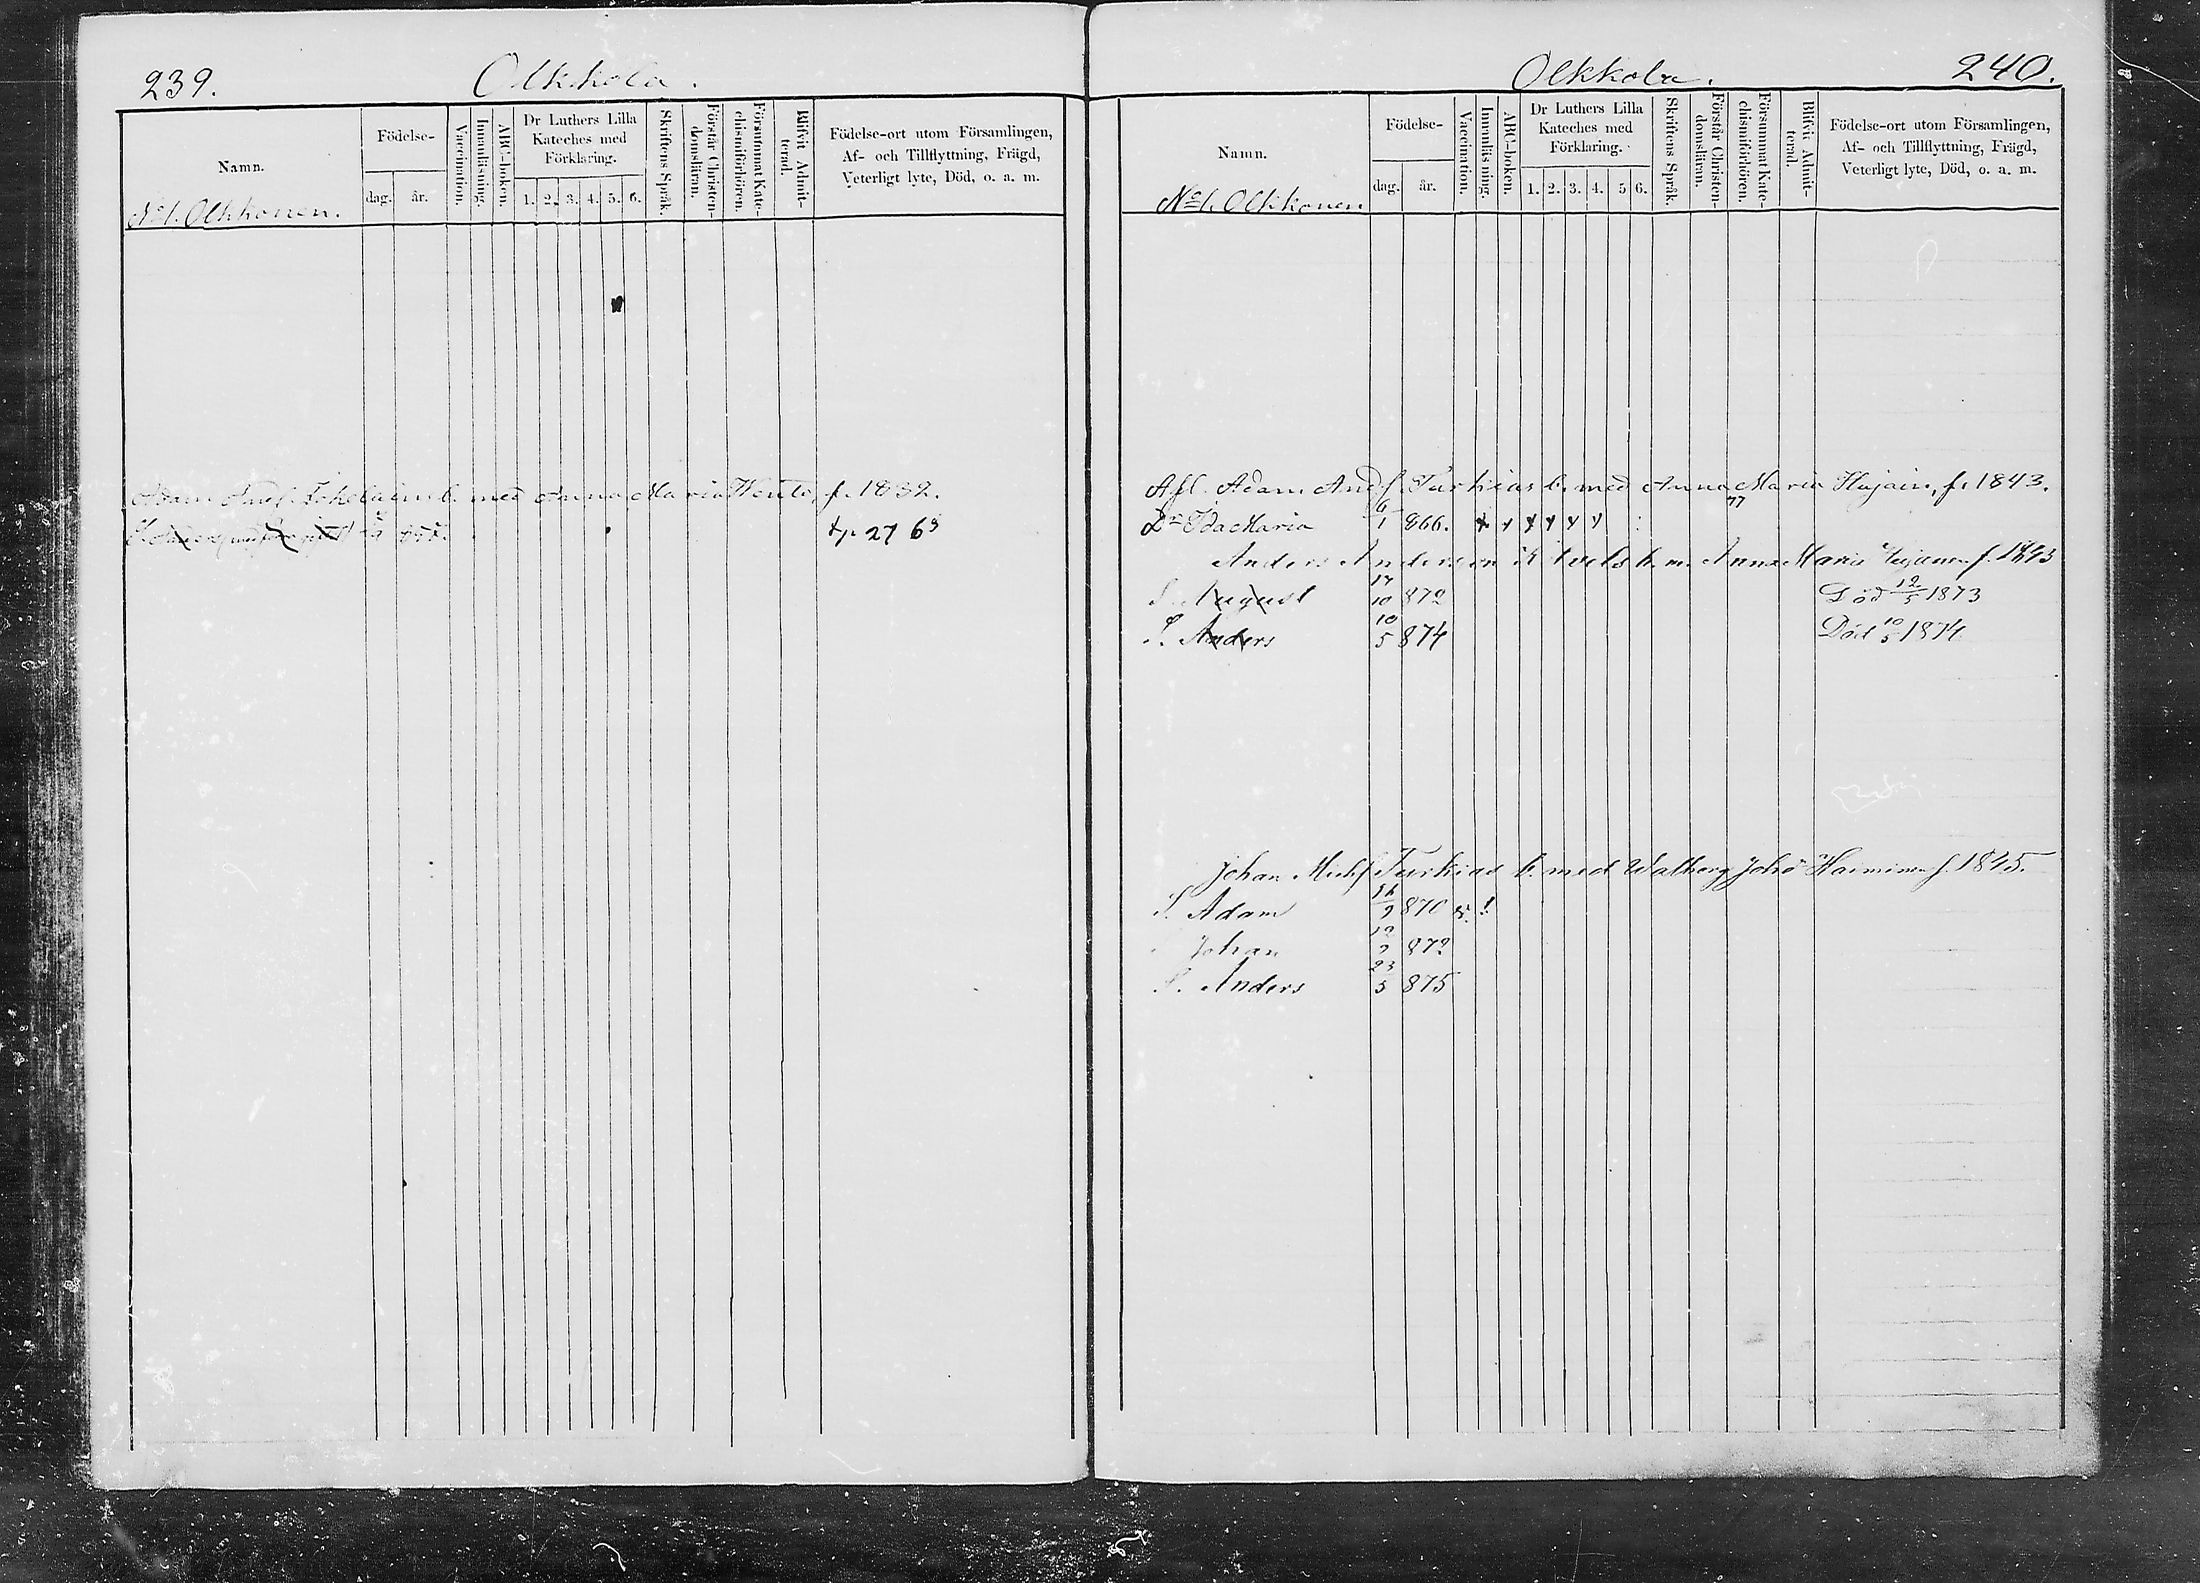 239.
Olkkola.
Namn.
Födelse-
dag.
år.
Vaccination.
Innanläsning.
ABC-boken.
Dr Luthers Lilla
Kateches med
Förklaring.
1. 2. 3. 4. 5. 6.
Skriftens Språk.
Förstår Christen-
domsläran.
Försummat Kate-
chismiförhören.
Blifvit Admit-
terad.
Födelse-ort utom Församlingen,
Af- och Tillflyttning, Frägd,
Veterligt lyte, Död, o. a. m.
No 1. Olkkonen.
Adam b. med Anna Maria f. 1832.
27 68
Olkkola.
240.
Namn.
Födelse-
dag.
år.
Vaccination.
Innanläsning.
ABC-boken.
Dr Luthers Lilla
Kateches med
Förklaring.
1. 2. 3. 4. 5 6.
Skriftens Språk.
Förstår Christen-
domsläran.
Försummat Kate-
chismiförhören.
Blifvit Admit-
terad.
Födelse-ort utom Församlingen,
Af- och Tillflyttning, Frägd,
Veterligt lyte, Död, o. a. m.
No 1. Olkkonen
Afl. Adam And f. Turkias b. med Anna Maria f. 1843.
Dr Ida Maria 6/1 866.
77
Anders Andersson b. m. Anna Maria f. 1843
S. August 17/10 872 Död 12/5 1873
S. Anders 10/5 874 Död 10/5 1874
Johan Mich f Turkias b. med Walborg Joh:s f. 1845.
S. Adam 870
Johan 872
S. Anders 23/5 875